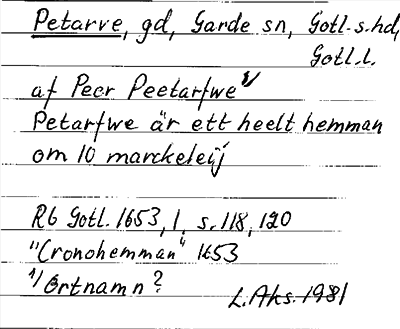 Petarve, gd, Garde sn, Gotl. s. hd,
Gotl. l.
af Pecr Peetarfwe 1/
Petarfwe är ett heelt hemman
om 10 marckeleij
Rb Gotl. 1653, 1, s. 118, 120
"Cronohemman" 1653
1/ Ortnamn?
L. Aks. 1981